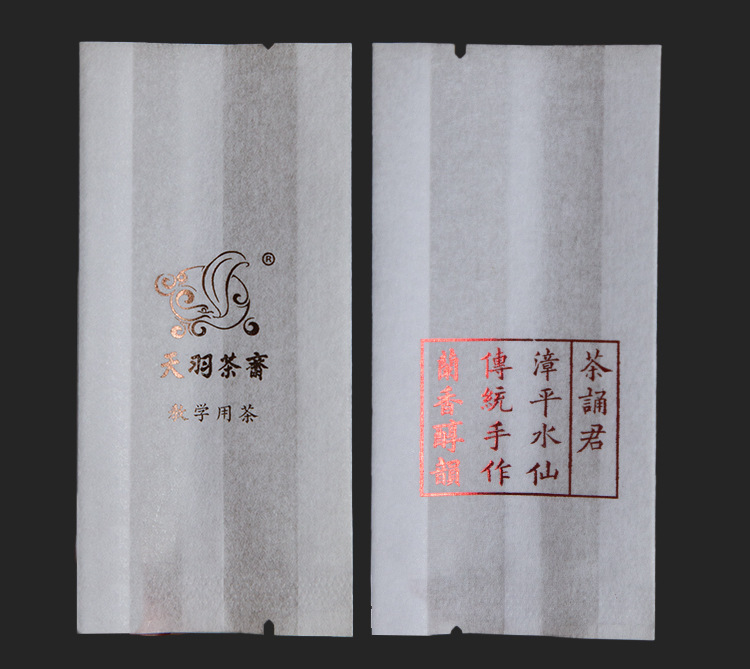 ®
天羽茶齋
教学用茶
茶誦君
漳平水仙
傳統手作
蘭香醇韻